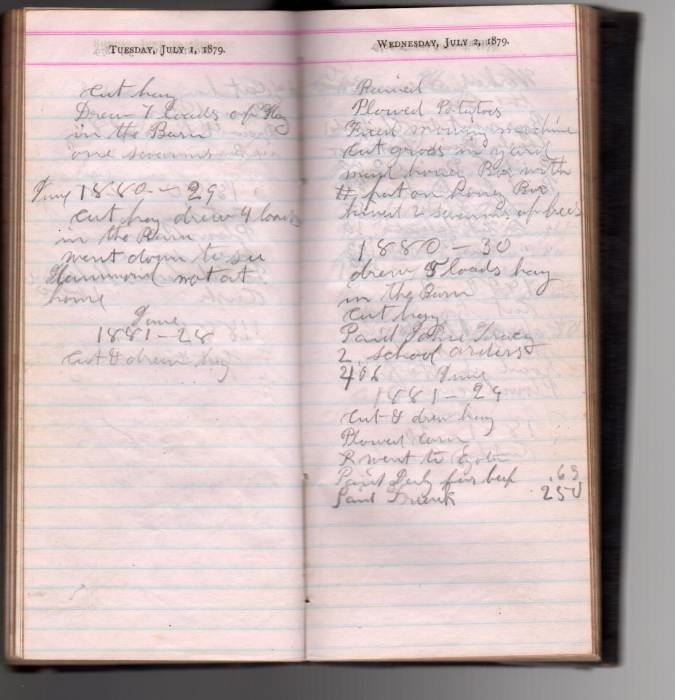 TUESDAY, JULY 1, 1879.
Cut hay
Drew 7 loads of Hay
in the Barn
one
June 1880 - 29
Cut hay drew 4 loads
in the Barn
went down to see
Hammond not at
home
June
1881 - 28
Cut & drew hay
WEDNESDAY, JULY 2, 1879.
Rained
Plowed Potatoes
Fixed machine
Cut grass in yard
honey Box with
# put on honey Box
hived 2 swarms of bees
1880 - 30
drew 5 loads hay
in the Barn
Cut hay
Paid John Tracy
2 school orders
406 June
1881 - 29
Cut & drew hay
Plowed corn
R went to
Paid for beef .63
Paid Frank 250